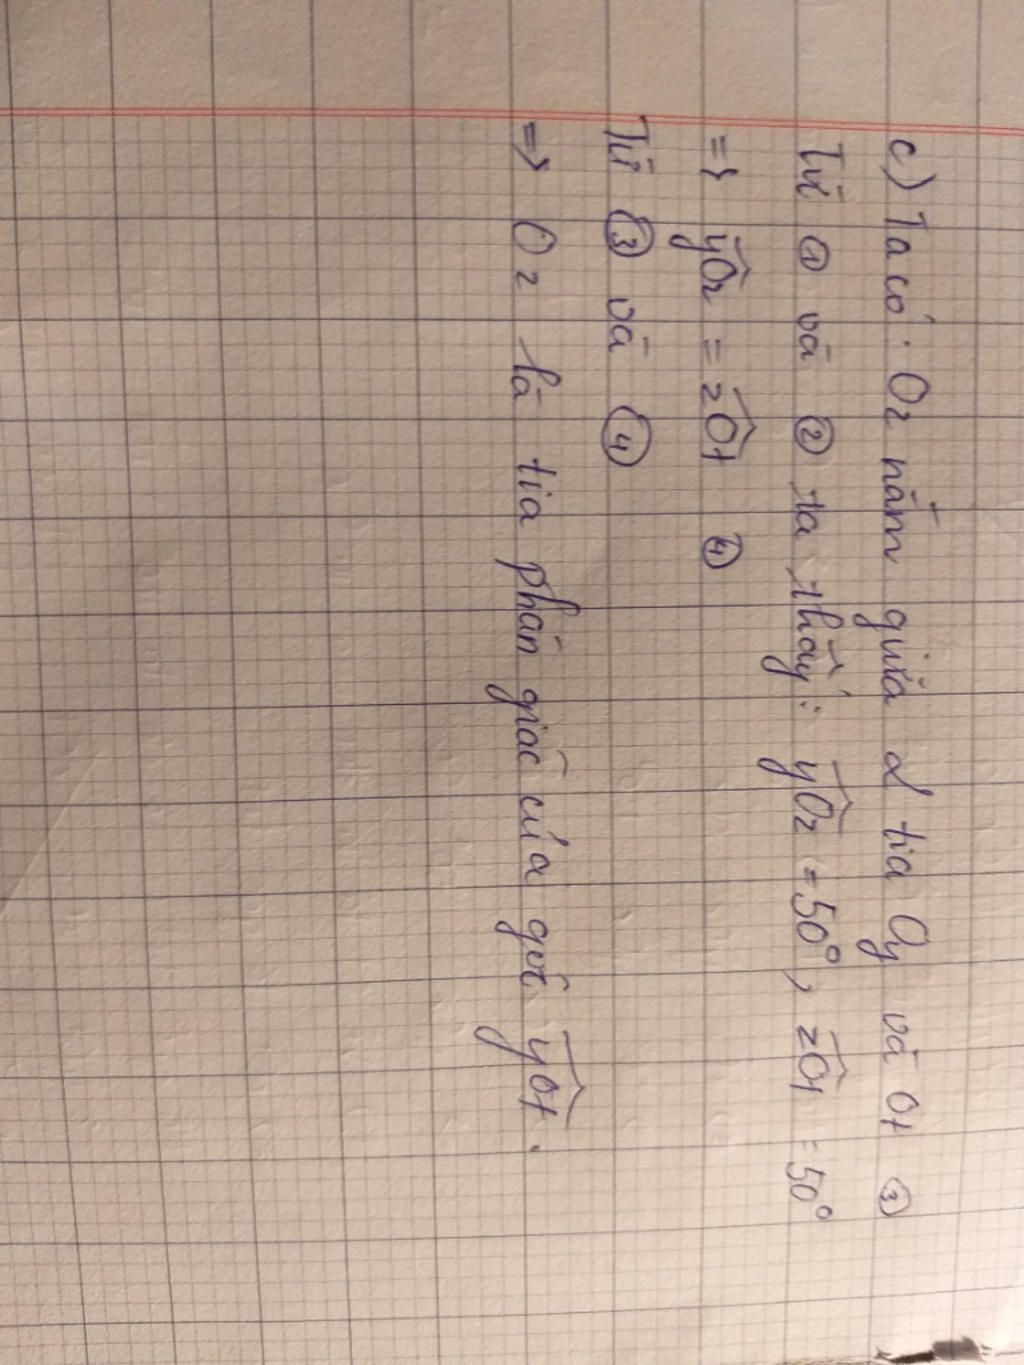 c) Ta có: Oz nằm giữa 2 tia Oy và Ot ③
Từ ① và ② ta thấy: yOz = 50°, zOt = 50°
=> yOz = zOt ④
Từ ③ và ④
=> Oz là tia phân giác của góc yOt.